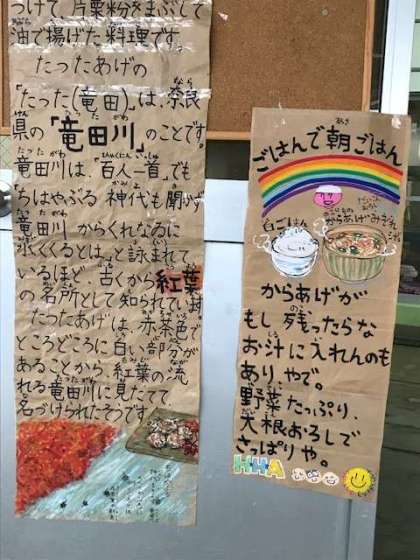 つけて、片栗粉をまぶして
油で揚げた料理です。
たつたあげの
「たつた(竜田)」は、奈良
県の「竜田川」のことです。
竜田川は、「百人一首」でも
「ちはやぶる 神代も聞かず
竜田川 からくれなゐに
水くくるとは」と詠まれて
いるほど、古くから紅葉
の名所として知られています。
たつたあげは、赤茶色で
ところどころに白い部分が
あることから、紅葉の流
れる竜田川に見たてて
名づけられたそうです。
ごはんで朝ごはん
白ごはん
からあげみそ汁
からあげが
もし残ったらな
お汁に入れんのも
ありやで。
野菜たっぷり、
大根おろしで
さっぱりや。
HHA